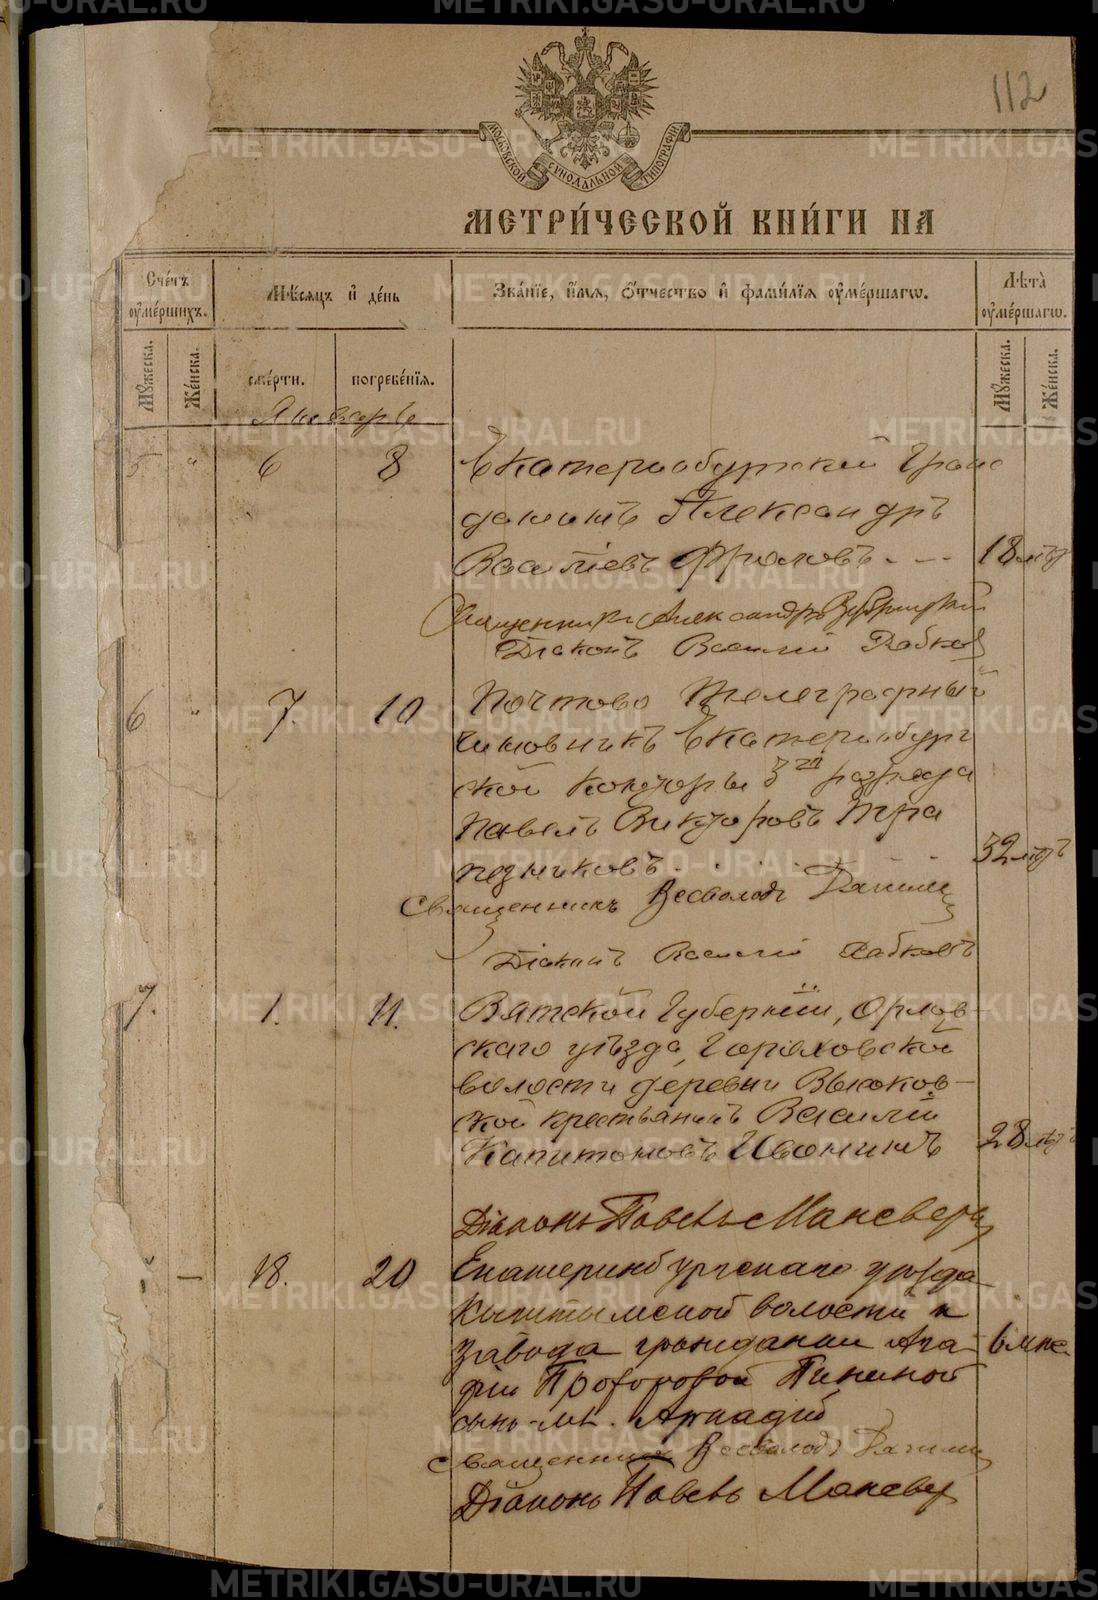 112
МОСКОВСКОЙ СѴНОДАЛЬНОЙ ТИПОГРАФІИ
МЕТРИ́ЧЕСКОЙ КНИ́ГИ НА
Сче́тъ ᲂумершихъ.
Мѣ́сяцъ и де́нь
Зва́нїе, и́мя, ѻ́тчество и фами́лїя ᲂуме́ршагѡ.
Лѣта̀ ᲂуме́ршагѡ.
Мꙋжеска.
Же́нска.
сме́рти.
погребе́нїя.
Мꙋжеска.
Же́нска.
Январь
5 " 6 8 Екатеринбургскій Граж
данинъ Александръ
Василіевъ Фроловъ - - - 18 лѣт
Священникъ Александръ
Діаконъ Василій Хабков
6 " 7. 10 Почтово Телеграфный
чиновникъ Екатеринбург
ской Конторы 3го разряда
Павелъ Викторовъ Тра
пезниковъ. 32 лѣтъ
Священникъ Всеволодъ
Діаконъ Василій Хабковъ
7. 1. 11. Вятской Губерніи, Орлов-
скаго уѣзда, Гороховской
волости деревни Высоков-
ской крестьянинъ Василій
Капитоновъ Иванинъ 28 лѣтъ
Діаконъ Павелъ
— 18. 20 Екатеринбургскаго уѣзда
Кыштымской волости и
завода гражданки Ага
фіи Прохоровой Пининой
сынъ мл. Аркадій
6 мѣс
Священникъ Всеволодъ
Діаконъ Павелъ
METRIKI.GASO-URAL.RU